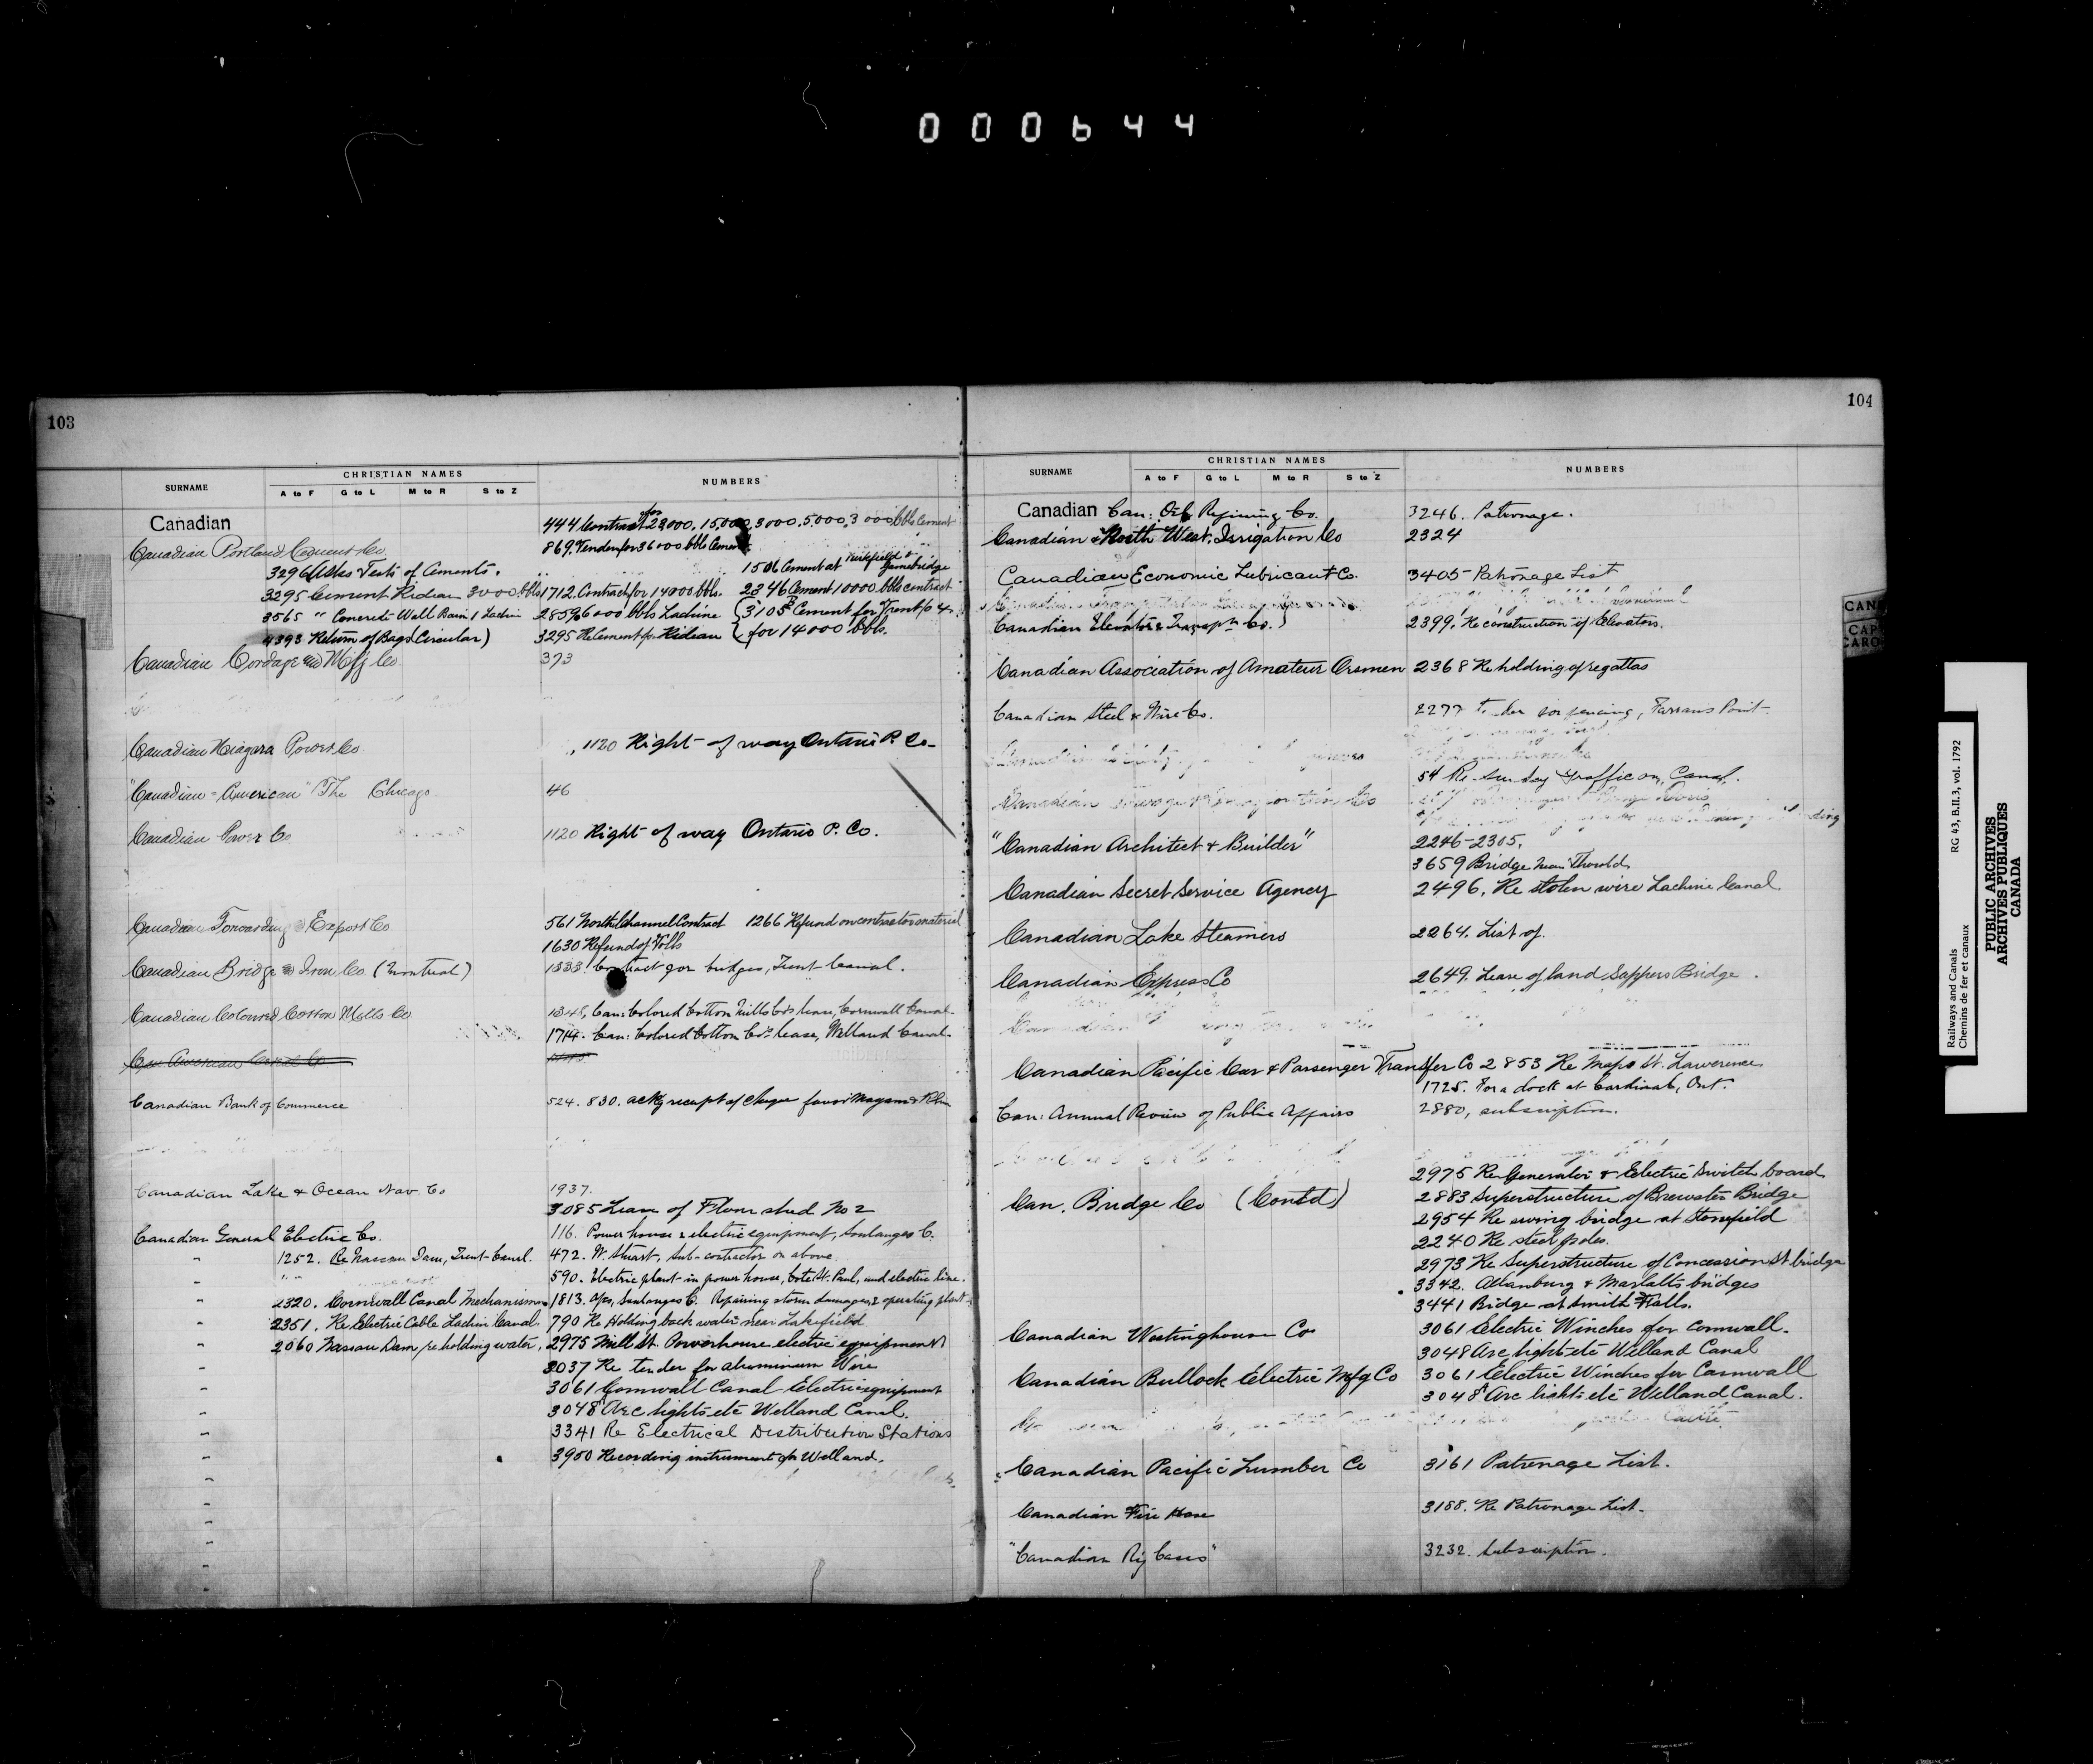 000644
103
SURNAME
CHRISTIAN NAMES
A to F G to L M to R S to Z
NUMBERS
Canadian
444 Contract for 23,000, 15,000, 3000, 5,000, 3000 bbls Cement
Canadian Portland Cement Co
869. Tender for 36000 bbls Cement
3296 Tests of Cements.
1506 Cement at Kirkfield & Gamebridge
3295 Cement Rideau 3000 bbls
1712. Contract for 14000 bbls. 2346 Cement 10000 bbls contract
3565 " Concrete Wall Basin 1 Lachine
2859 6000 bbls Lachine {3105 Cement for Trent
4393 Return of Bags Circular)
3295 Re Cement for Rideau { for 14000 bbls.
Canadian Cordage and Mfg Co.
373
Canadian Niagara Power Co
1120 Right of way Ontario P. Co.
"Canadian-American" The Chicago
46
Canadian Power Co
1120 Right of way Ontario P. Co.
Canadian Forwarding & Export Co
561 North Channel Contract 1266 Refund on contractors material
1630 Refund of Tolls
Canadian Bridge & Iron Co. (Montreal)
1333. Contract for bridges, Trent Canal.
Canadian Coloured Cotton Mills Co
1345, Can: Colored Cotton Mills Co's lease, Cornwall Canal.
1714. Can: Colored Cotton Co's lease, Welland Canal.
Can American Co
Canadian Bank of Commerce
524. 830. ackg receipt of cheque favor
Canadian Lake & Ocean Nav. Co
1937.
3085 Lease of Flour shed No 2
Canadian General Electric Co.
116. Power house & electric equipment, Soulanges C.
" 1252. Re Nassau Dam, Trent Canal.
472. W. Stuart, sub-contractor on above.
590. Electric plant in power house, Cote St. Paul, and electric line.
" 2320. Cornwall Canal Mechanism
1813. Soulanges C. Repairing storm damages, & operating plant
" 2351. Re Electric Cable Lachine Canal.
790 Re Holding back water near Lakefield
" 2060 Nassau Dam, re holding water,
2975 Mill St. Powerhouse electric equipment
3037 Re tender for aluminum Wire
3061 Cornwall Canal Electric equipment
3048 Arc lights etc Welland Canal.
3341 Re Electrical Distribution Stations
3950 Recording instrument for Welland.
104
SURNAME
CHRISTIAN NAMES
A to F G to L M to R S to Z
NUMBERS
Canadian Can: Oil Refining Co.
3246. Patronage.
Canadian North West. Irrigation Co
2324
Canadian Economic Lubricant Co.
3405 Patronage List
Canadian Elevator & Transpn Co.)
2399, Re construction of Elevators.
Canadian Association of Amateur Orsmen
2368 Re holding of regattas
Canadian Steel & Wire Co.
2277 Tender for fencing, Farrans Point
54 Re Sunday traffic on Canal.
"Canadian Architect & Builder"
2246-2305.
3659 Bridge near Thorold
Canadian Secret Service Agency
2496. Re stolen wire Lachine Canal
Canadian Lake Steamers
2264. List of.
Canadian Express Co
2649. Lease of land Sappers Bridge.
Canadian Pacific Car & Passenger Transfer Co
2853 Re Maps St. Lawerence
1725. For a dock at Cardinal, Ont.
Can: Annual Review of Public Affairs
2880, subscription.
2975 Re Generator & Electric Switch board
Can. Bridge Co (Contd)
2883 Superstructure of Brewster Bridge
2954 Re swing bridge at Stonefield
2240 Re steel poles.
2973 Re Superstructure of Concession St bridge
3342. Allanburg & Marlatts bridges
3441 Bridge at Smith Falls.
Canadian Westinghouse Co
3061 Electric Winches for Cornwall.
3048 Arc lights etc Welland Canal
Canadian Bullock Electric Mfg Co
3061 Electric Winches for Cornwall
3048 Arc lights etc Welland Canal.
Canadian Pacific Lumber Co
3161 Patronage List.
Canadian Fire Hose
3188. Re Patronage List.
"Canadian Ry Cases"
3232. Subscription.
CAN
CAP
CARO
Railways and Canals RG 43, B.II.3, vol. 1792
Chemins de fer et canaux
PUBLIC ARCHIVES
ARCHIVES PUBLIQUES
CANADA